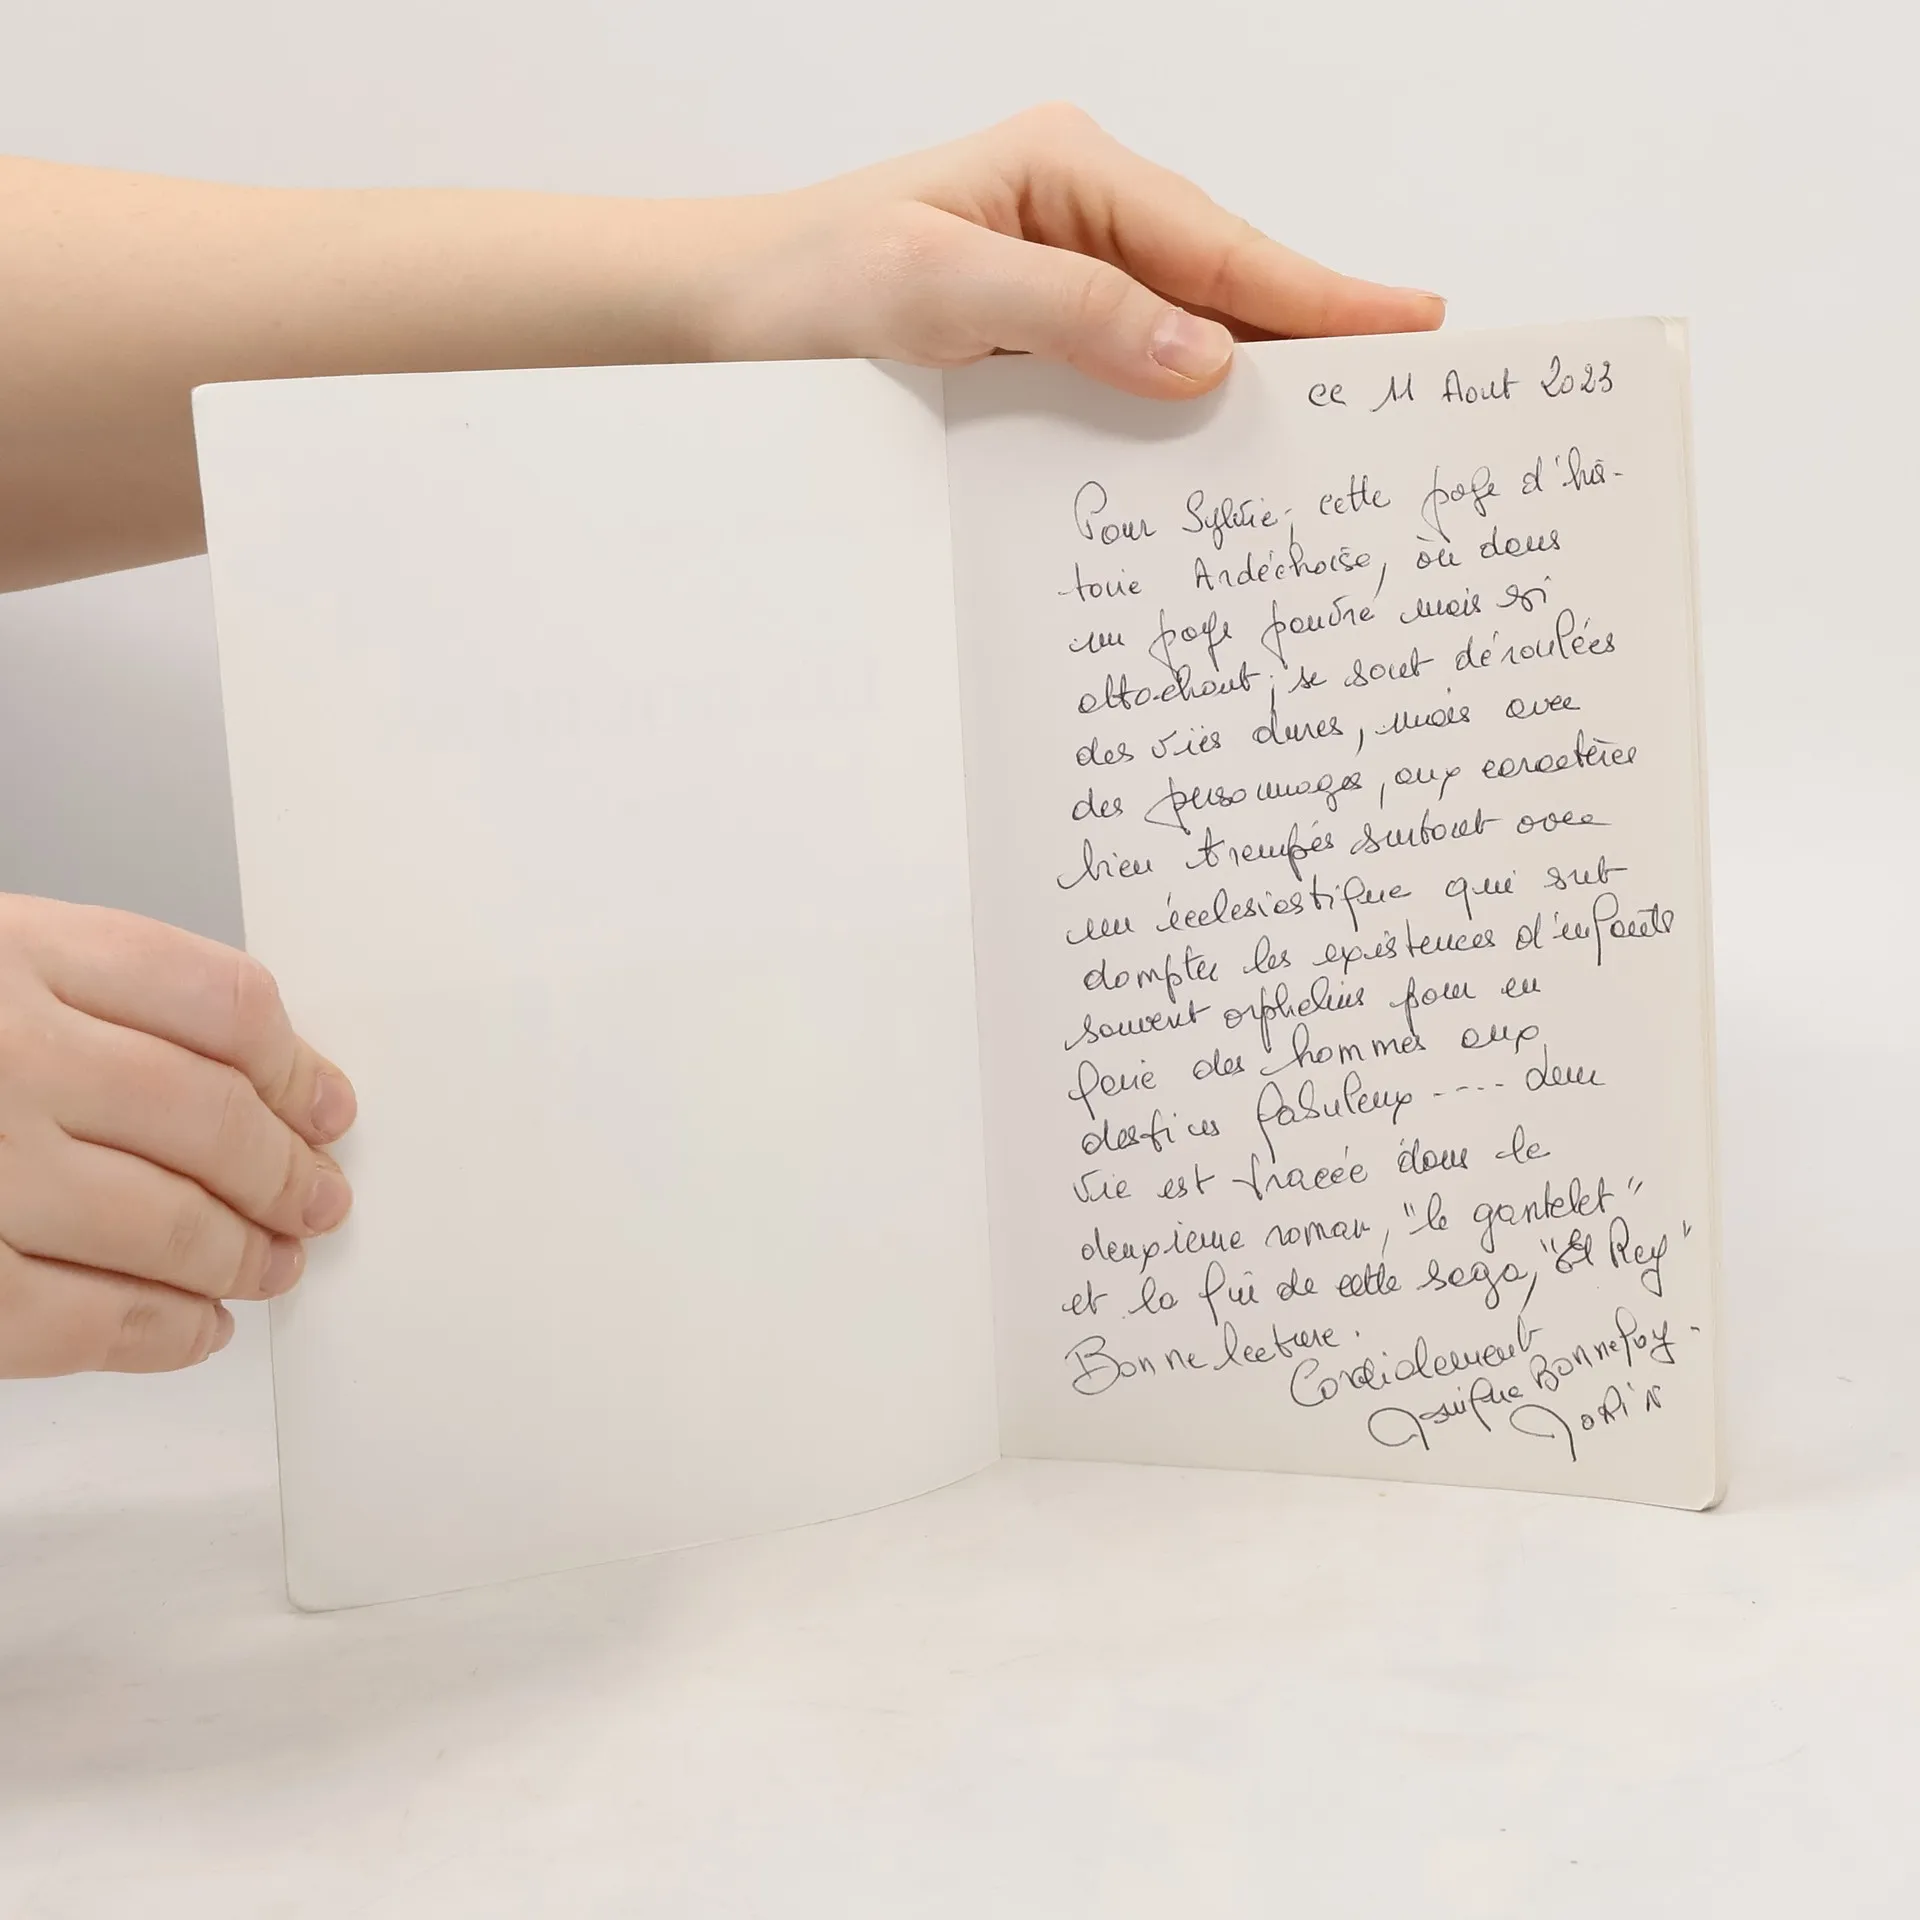 ce 11 Aout 2023
Pour Sylvie, cette page d'his-
toire Ardéchoise, où dans
un pays pauvre mais si
attachant, se sont déroulées
des vies dures, mais avec
des personnages, aux caractères
bien trempés surtout avec
un écclesiastique qui sut
dompter les existences d'enfants
souvent orphelins pour en
faire des hommes aux
destins fabuleux .... leur
vie est tracée dans le
deuxième roman, "le gantelet"
et la fin de cette saga, "El Rey"
Bonne lecture.
Cordialement
Bonnefoy-
Jorin